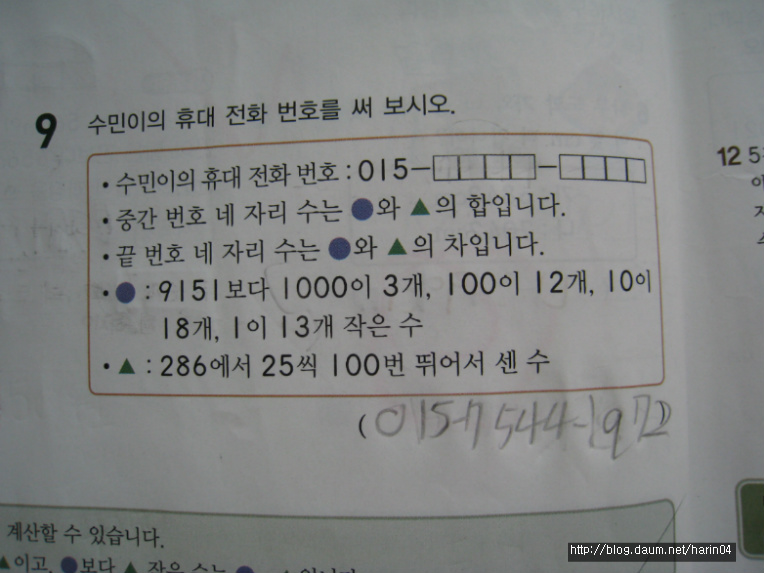 9 수민이의 휴대 전화 번호를 써 보시오.
• 수민이의 휴대 전화 번호 : 015-□□□□-□□□□
• 중간 번호 네 자리 수는 ●와 ▲의 합입니다.
• 끝 번호 네 자리 수는 ●와 ▲의 차입니다.
• ● : 9151보다 1000이 3개, 100이 12개, 10이
18개, 1이 13개 작은 수
• ▲ : 286에서 25씩 100번 뛰어서 센 수
(015-7544-1972
12 5
계산할 수 있습니다.
▲이고, ●보다 ▲ 작은 수는
http://blog.daum.net/harin04